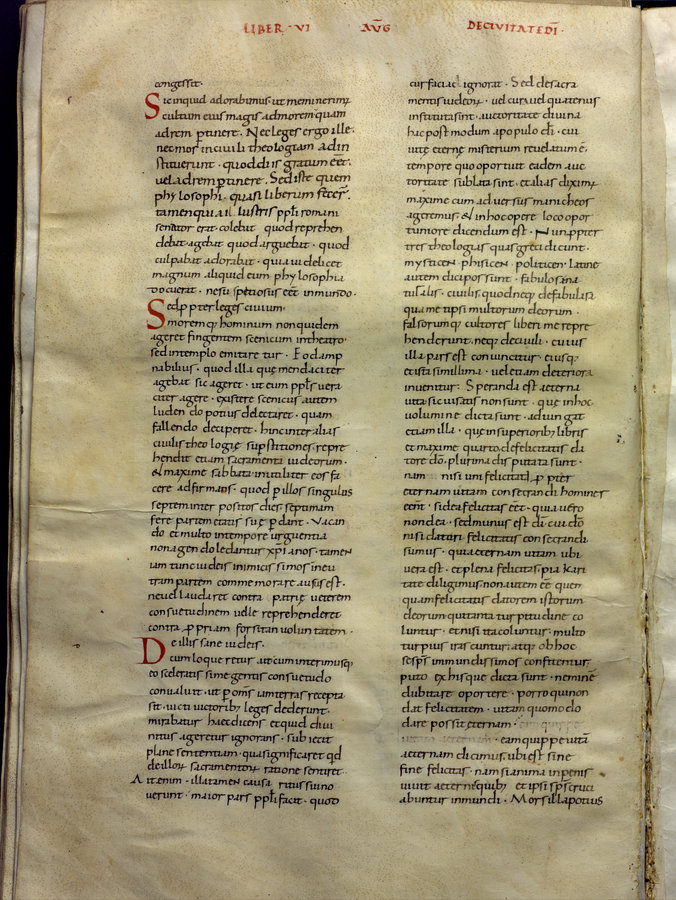 LIBER · VI AUG̅ DE CIVITATE DI̅ ·
congisset ·
Sic inquid adorabimus · ut meminerimꝰ
cultum eius magis ad morem quam
ad rem ꝑtinere · Nec leges ergo ille ·
nec mos in ciuili theologiam ad in
stituerunt · quod diis gratum ee̅t ·
uel ad rem ꝑtinere · Sed iste quem
phylosophi · quasi liberum fecer̅ ·
tamen quia il lustris ppl̅i romani
senator erat colebat quod reprehen
debat · agebat quod arguebat · quod
culpabat adorabat · quia uidelicet
magnum aliquid eum phylosophia
docuerat · ne sup̅stiosus ee̅t in mundo ·
Sed ꝓpter leges ciuium ·
moremq; hominum non quidem
ageret fingentem scenicum in theatro ·
sed in templo emitare tur · Eo damp
nabilius · quod illa que mendaciter
agebat sic ageret · ut eum ppl̅s uera
citer agere · existere scenicus autem
luden do potius delectaret · quam
fallendo deciperet · hinc inter alias
ciuilis theologie sup̅stitiones · repre
hendit etiam sacramenta iudeorum ·
& maxime sabbata inutiliter eos fa
cere adfirmans · quod p̱ illos singulos
septem inter positos dies septimam
fere partem etatis suę ꝑdant · Vacan
do et multo in tempore urgentia
non agendo ledantur xp̅ianos · tamen
iam tunc iudeis inimicissimos in eu
tram partem commemorare ausus est ·
ne uel laudaret contra patrię ueterem
consuetudinem uelle reprehenderet
contra ꝓpriam forsitan uoluntatem ·
De illis sane iudeis ·
cum loqueretur ait cum interim usq;
eo sceleratissime gentis consuetudo
conualuit · ut p̱ om̅s iam terras recepta
sit · uicti uictoribꝰ leges dederunt ·
mirabatur haec dicens et quid diui
nitus ageretur ignorans · subiecit
plane sententiam · qua significaret qd̅
de illoꝝ sacramentoꝝ ratione sentiret ·
Ait enim · illa tamen causas ritus sui no
uerunt · maior pars ppl̅i facit · quod
cur faciac ignorat · Sed de sacra
mentis iudeoꝝ · uel cur a uel quatenus
instituta sint · auctoritate diuina
hac post modum a populo di̅ · cui
uitę eternę misterium reuelatum ē ·
tempore quo oportuit eadem auc
toritate sublata sint · et alias diximꝰ
maxime cum aduersus manicheos
ageremus · & in hoc opere loco opor
tuniore dicendum est · Nunc ꝓpter
tres theologias quas greci dicunt ·
mysticen · phisicen · politicen · latine
autem dici possunt · fabulosa na
turalis · ciuilis · quod neq; de fabulosa
quam et ipsi multorum deorum
falsorumq; cultores liberi me repre
henderunt · neq; de ciuili · cuius
illa pars est conuincitur · eiusq;
et ista simillima · uel etiam deteriora
inuenitur · Speranda est aeterna
uita si cui satis non sunt · que in hoc
uolumine dicta sunt · adiungat
etiam illa · quę in superioribꝰ libris
et maxime quarto de felicitatis da
tore do̅ · plurima disputata sunt ·
nam nisi uni felicitati ꝓpter
eternam uitam consecrandi homines
ee̅nt · si dea felicitas ee̅t · quia uero
non dea · sed munus est di̅ cui do̅
nisi datori felicitatis consecrandi
sumus · qua eternam uitam ubi
uera est · et plena felicitas · pia kari
tate diligimus non autem ee̅ quen
quam felicitatis datorem istorum
deorum qui tanta turpitudine co
luntur · et nisi ita coluntur · multo
turpius irascuntur · atq; ob hoc
se sp̅s immundissimos confitentur
puto ex his que dicta sunt · nemine
dubitare oportere · porro qui non
dat felicitatem · uitam quomodo
dare possit eternam ·
eam quippe uitā
aeternam dicimus · ubi est sine
fine felicitas · nam si anima in penis
uiuit aeternis quibꝰ et ipsi sp̅s cruci
abuntur inmundi · Mors illa potius